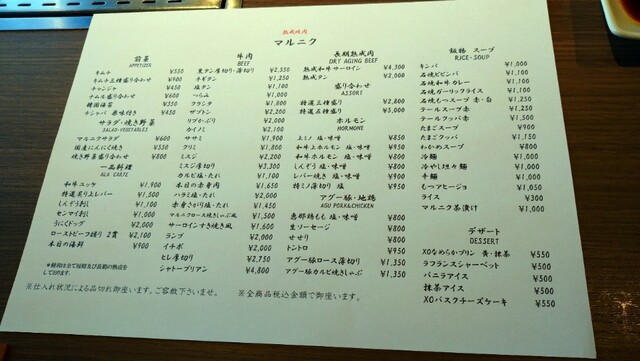 熟成焼肉
マルニク
前菜
APPETIZER
キムチ ¥550
キムチ三種盛り合わせ ¥900
チャンジャ ¥450
ナムル盛り合わせ ¥600
韓国海苔 ¥350
チシャバ 味噌付き ¥450
サラダ・焼き野菜
SALAD・VEGETABLES
マルニクサラダ ¥600
国産にんにく焼き ¥550
焼き野菜盛り合わせ ¥800
一品料理
ALA CARTE
和牛ユッケ ¥1,900
特選炙り上レバー ¥1,500
しんぞう刺し ¥1,000
センマイ刺し ¥1,000
うにくドッグ ¥2,000
ローストビーフ握り 2貫 ¥2,100
本日の海鮮 ¥900
牛肉
BEEF
黒タン厚切り・薄切り ¥2,550
ネギタン ¥1,250
塩タン ¥1,100
つらみ ¥1,000
フランク ¥1,800
ザブトン ¥2,200
リブかぶり ¥2,000
カイノミ ¥2,100
ササミ ¥1,900
クリミ ¥1,800
ミスジ ¥2,200
ミスジ厚切り ¥3,300
カルビ塩・たれ ¥1,100
本日の赤身肉 ¥1,650
ハラミ塩・たれ ¥2,000
赤センタレ ¥1,450
マルニクロース焼きしゃぶ風 ¥1,500
サーロインすき焼き風 ¥1,500
ランプ ¥2,000
イチボ ¥2,000
ヒレ厚切り ¥2,750
シャトーブリアン ¥4,800
長期熟成肉
DRY AGING BEEF
熟成和牛サーロイン ¥4,300
熟成タン ¥2,000
盛り合わせ
ASSORT
特選三種盛り ¥2,800
特選五種盛り ¥5,000
ホルモン
HORMONE
上ミノ 塩・味噌 ¥850
和牛上ホルモン 塩・味噌 ¥950
和牛ホルモン 塩・味噌 ¥850
しんぞう 塩・味噌 ¥800
レバー焼き 塩・味噌 ¥900
特ミノ薄切り 塩 ¥950
アグー豚・地鶏
AGU PORK&CHICKEN
恵那鶏もも 塩・味噌 ¥800
生ソーセージ ¥800
せせり ¥800
トントロ ¥950
アグー豚ロース薄切り ¥1,350
アグー豚カルビ焼きしゃぶ ¥1,350
飯物 スープ
RICE・SOUP
キンパ ¥1,000
石焼ビビンバ ¥1,100
石焼和牛カレー ¥1,100
石焼ガーリックライス ¥1,100
石焼もつスープ 赤・白 ¥1,250
テールスープ 赤・白 ¥1,500
テールクッパ 赤・白 ¥1,500
たまごスープ ¥900
たまごクッパ ¥1,150
わかめスープ ¥800
冷麺 ¥1,000
冷やし坦々麺 ¥1,000
辛麺 ¥1,000
もつアヒージョ ¥1,050
ライス ¥300
マルニク茶漬け ¥1,000
デザート
DESSERT
XOなめらかプリン 黄・抹茶 ¥550
ラフランスシャーベット ¥550
バニラアイス ¥550
抹茶アイス ¥550
XOバスクチーズケーキ ¥550
※仕入れ状況による品切れ御座います。ご容赦下さいませ。 ※全商品税込金額で御座います。